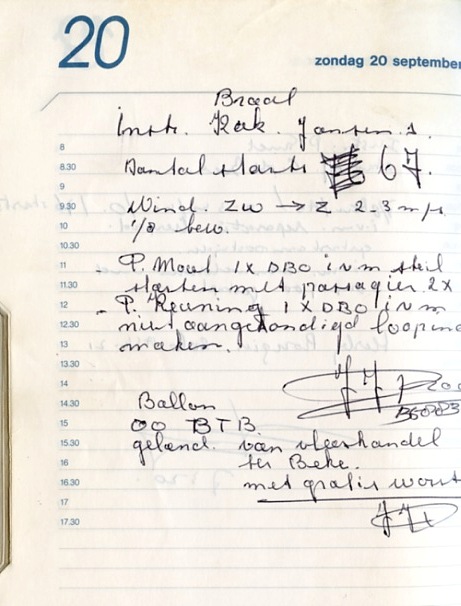 20
zondag 20 september
Braal
Instr. Kok. Jansen. s.
8
8.30 Aantal starts 67.
9
9.30 Wind. ZW → Z 2-3 m/s
10 1/8 bew.
10.30
11 - P. Moul 1X DBO i.v.m steil
11.30 starten met passagier. 2X
12 - P. Reuning 1 X DBO i.v.m
12.30 niet aangekondigd looping
13 maken.
13.30
14
14.30 Ballon
15 OO BTB.
15.30 geland. van vleeshandel
16 ter Beke.
16.30 met gratis worst
17
17.30